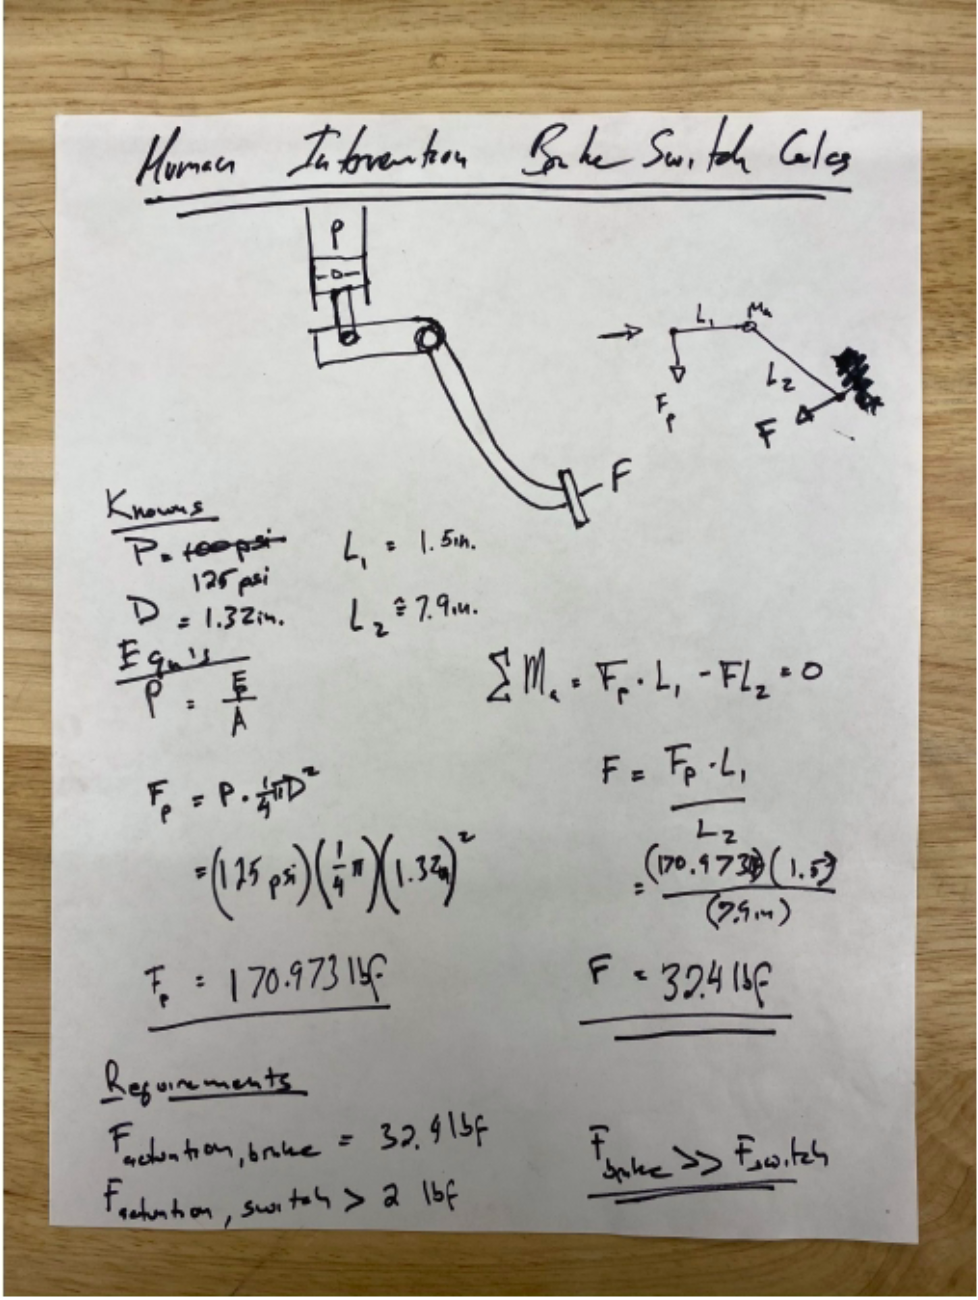 Human Intervention Brake Switch Calcs
P
-D-
L₁ Mₐ
L₂
Fₚ
F
F
Knowns
P = 100 psi L₁ = 1.5in.
125 psi
D = 1.32in. L₂ ≅ 7.9in.
Eqn's
P = F/A
ΣMₐ = Fₚ · L₁ - FL₂ = 0
Fₚ = P · ¼πD²
F = Fₚ · L₁ / L₂
= (125 psi)(¼ π)(1.32in)²
= (170.973)(1.5) / (7.9in)
Fₚ = 170.973 lbf
F = 32.4 lbf
Requirements
F actuation, brake = 32.4 lbf
F actuation, switch > 2 lbf
F brake >> F switch